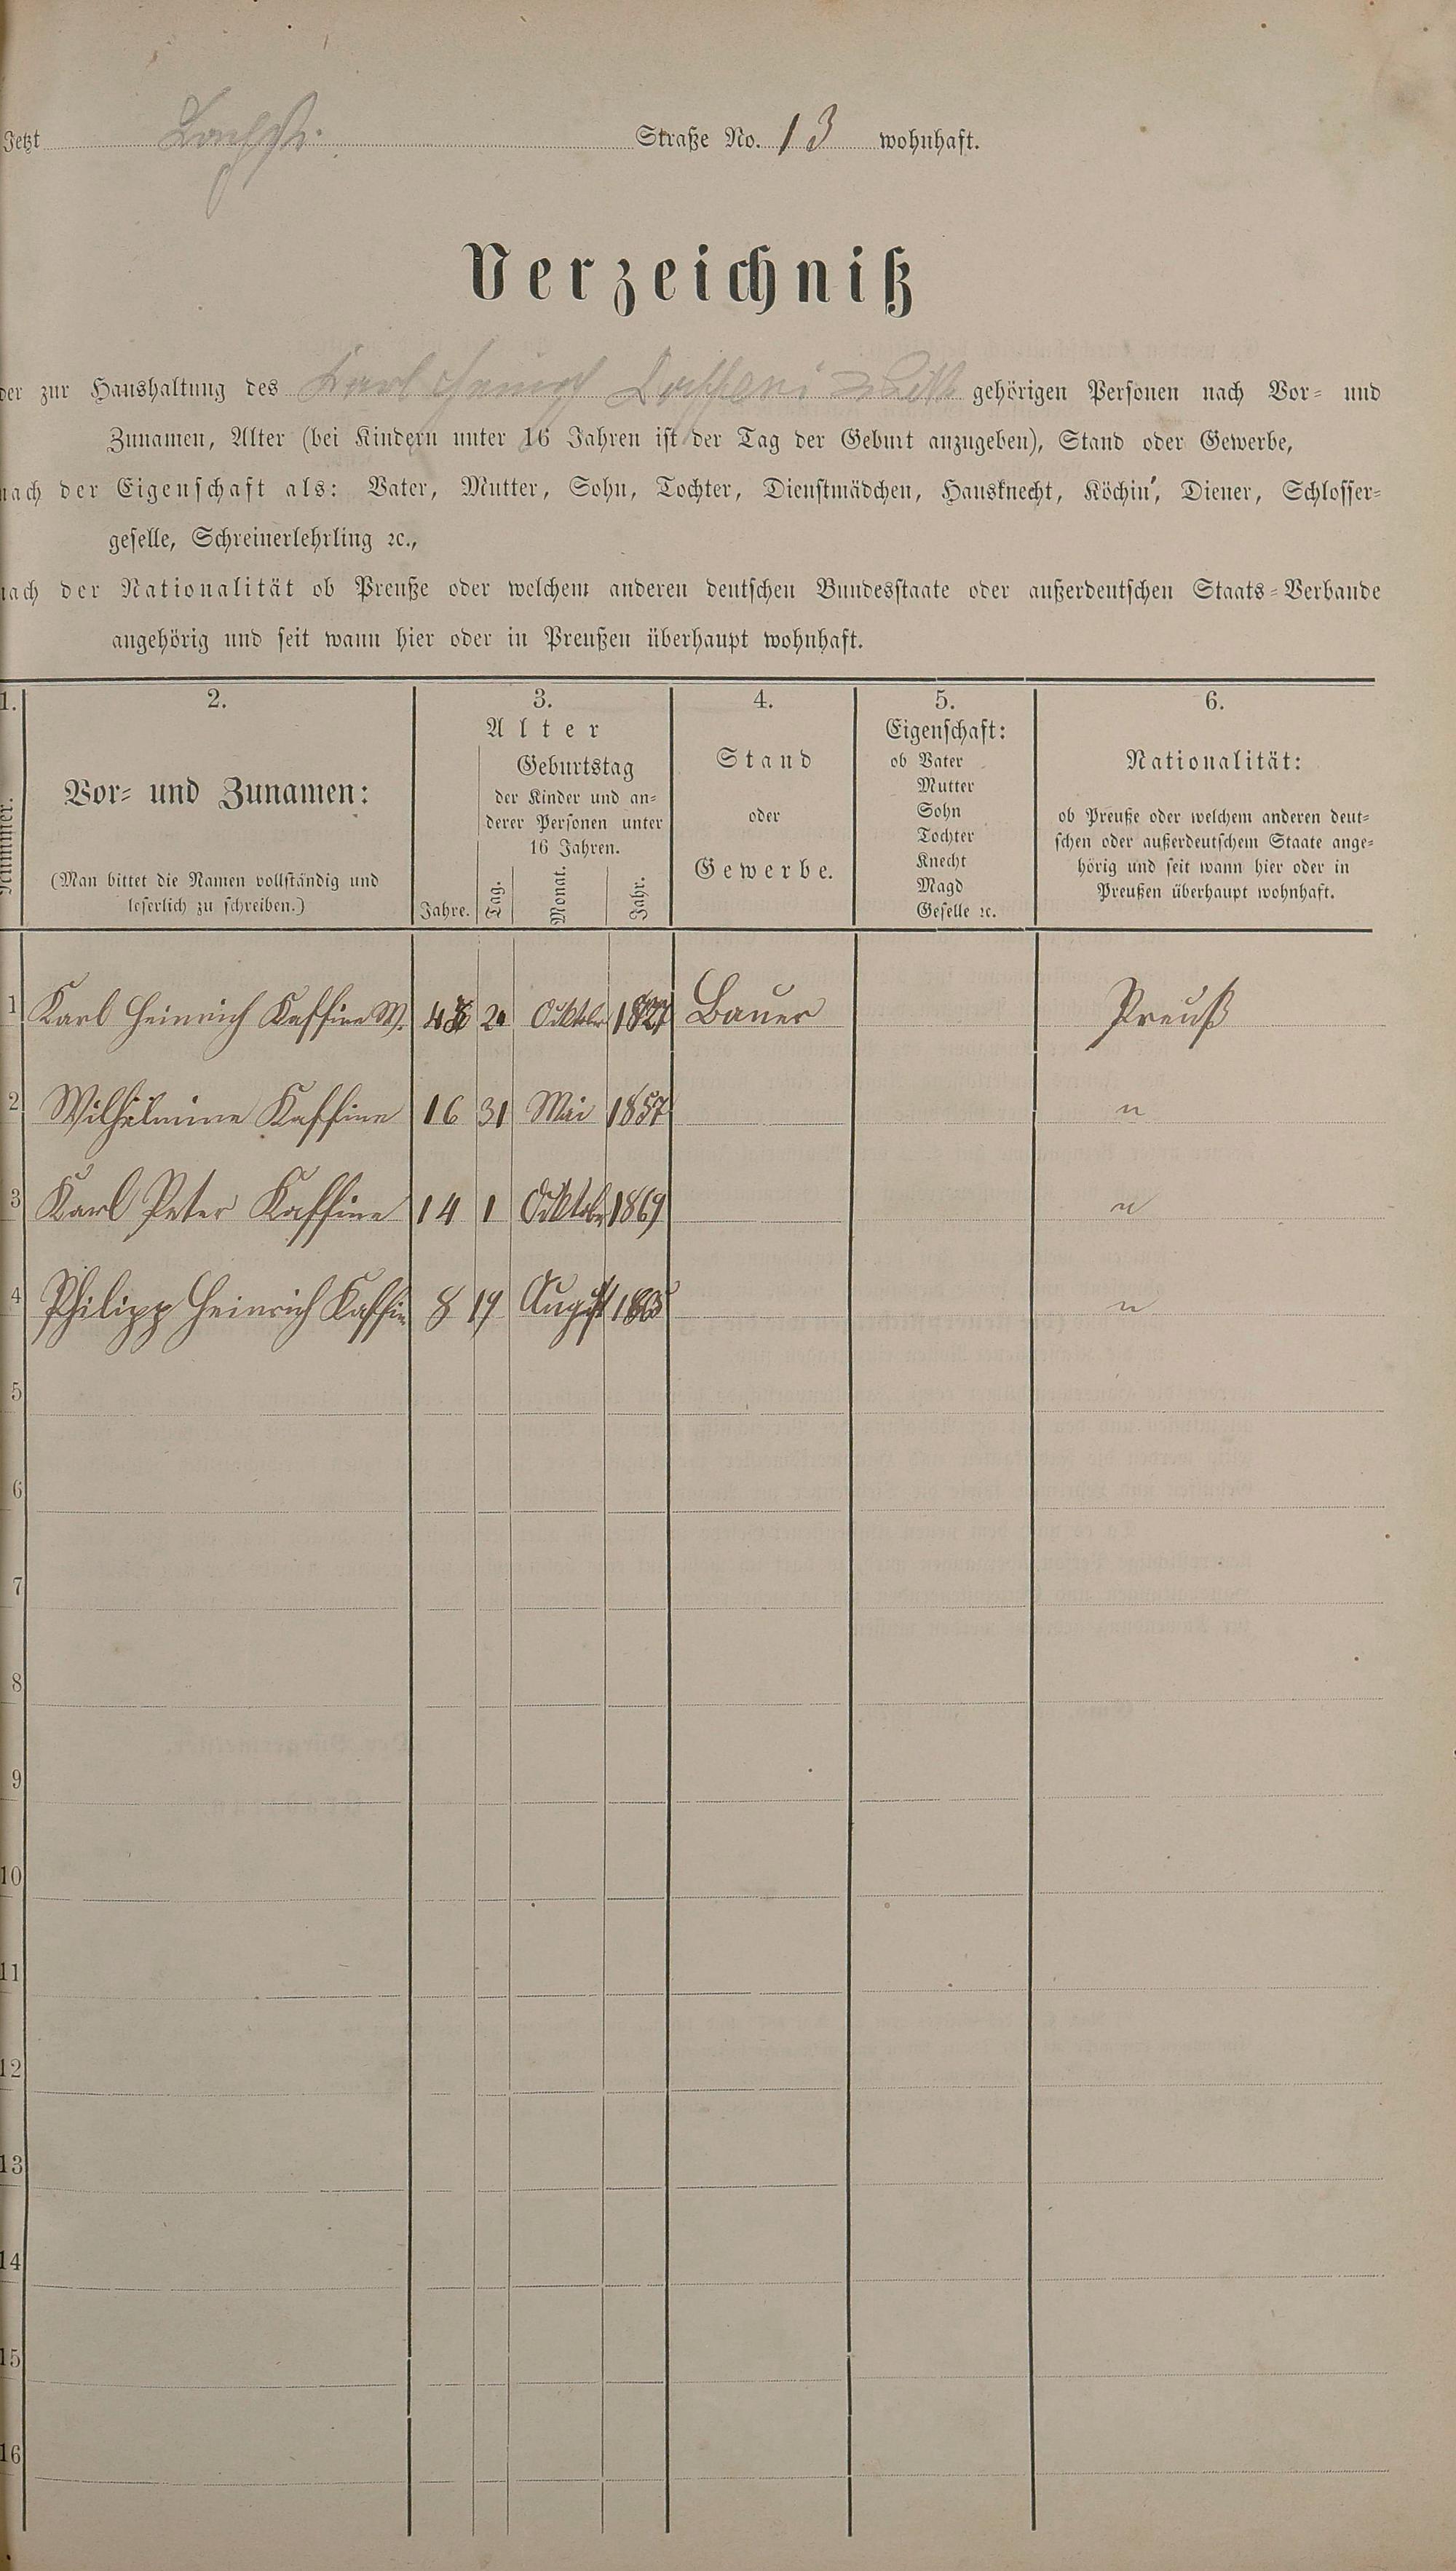 Jetzt Bachstr. Straße No. 13 wohnhaft.
Verzeichniß
der zur Haushaltung des Karl Heinrich gehörigen Personen nach Vor- und
Zunamen, Alter (bei Kindern unter 16 Jahren ist der Tag der Geburt anzugeben), Stand oder Gewerbe,
nach der Eigenschaft als: Vater, Mutter, Sohn, Tochter, Dienstmädchen, Hausknecht, Köchin, Diener, Schlosser-
geselle, Schreinerlehrling ꝛc.,
nach der Nationalität ob Preuße oder welchem anderen deutschen Bundesstaate oder außerdeutschen Staats-Verbande
angehörig und seit wann hier oder in Preußen überhaupt wohnhaft.
1. 2. 3. 4. 5. 6.
Nummer.
Vor- und Zunamen:
(Man bittet die Namen vollständig und
leserlich zu schreiben.)
Alter
Geburtstag
der Kinder und an-
derer Personen unter
16 Jahren.
Jahre. Tag. Monat. Jahr.
Stand
oder
Gewerbe.
Eigenschaft:
ob Vater
Mutter
Sohn
Tochter
Knecht
Magd
Geselle ꝛc.
Nationalität:
ob Preuße oder welchem anderen deut-
schen oder außerdeutschem Staate ange-
hörig und seit wann hier oder in
Preußen überhaupt wohnhaft.
1 Karl Heinrich Kaffine W. 20 Ocktober 1827 Bauer Preuß
2 Wilhelmine Kaffine 16 31 Mai 1857 "
3 Karl Peter Kaffine 14 1 Ocktober 1869 "
4 Philipp Heinrich Kaffine 8 19 August "
5
6
7
8
9
10
11
12
13
14
15
16